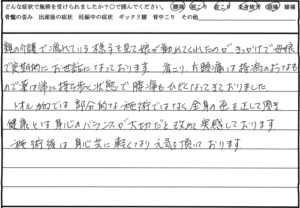 どんな症状で施術を受けられましたか？○で囲んでください。 腰痛 肩こり 首こり 全身疲労 頭痛 膝痛
骨盤の歪み 出産後の症状 妊娠中の症状 ギックリ腰 背中こり その他
親の介護で疲れている様子を見て娘が勧めてくれたのがきっかけで母娘
で定期的にお世話になっております。肩こり、片頭痛は持病のようなもの
で薬は常に持ち歩く状態で腰痛もひどくなってきておりました。
トオルカムでは部分的な施術ではなく全身の歪を正して頂き
健康とは身心のバランスが大切だと改めて実感しております。
施術後は身心共に軽くなり元気を頂いております。